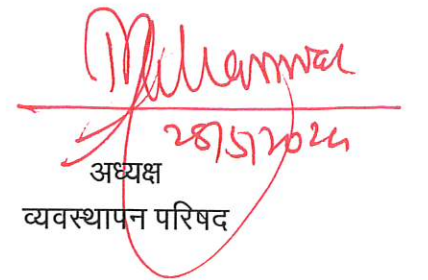 28/5/2024
अध्यक्ष
व्यवस्थापन परिषद